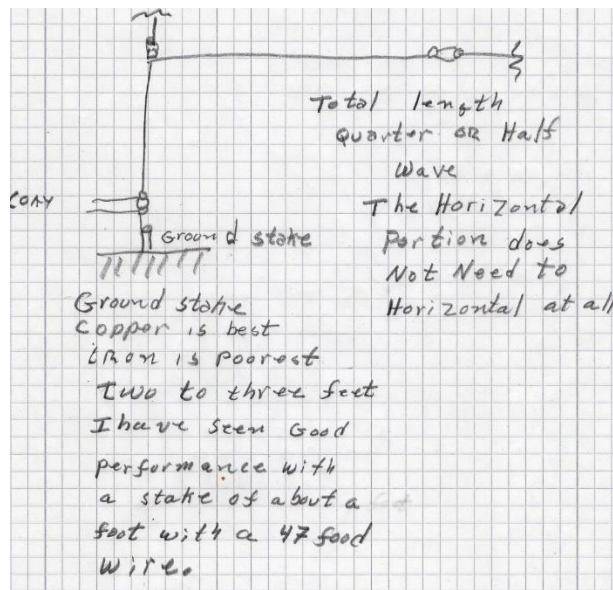 Total length
Quarter OR Half
Wave
The Horizontal
Portion does
Not Need to
Horizontal at all
COAX
Ground stake
Ground stake
Copper is best
IRon is Poorest
Two to three feet
I have seen Good
performance with
a stake of about a
foot with a 47 food
wire.